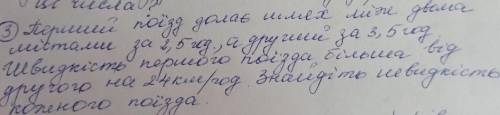 із числа?
③ Перший поїзд долає шлях між двома
містами за 2,5 год, а другий за 3,5 год
Швидкість першого поїзда більша від
другого на 24 км/год. Знайдіть швидкість
кожного поїзда.